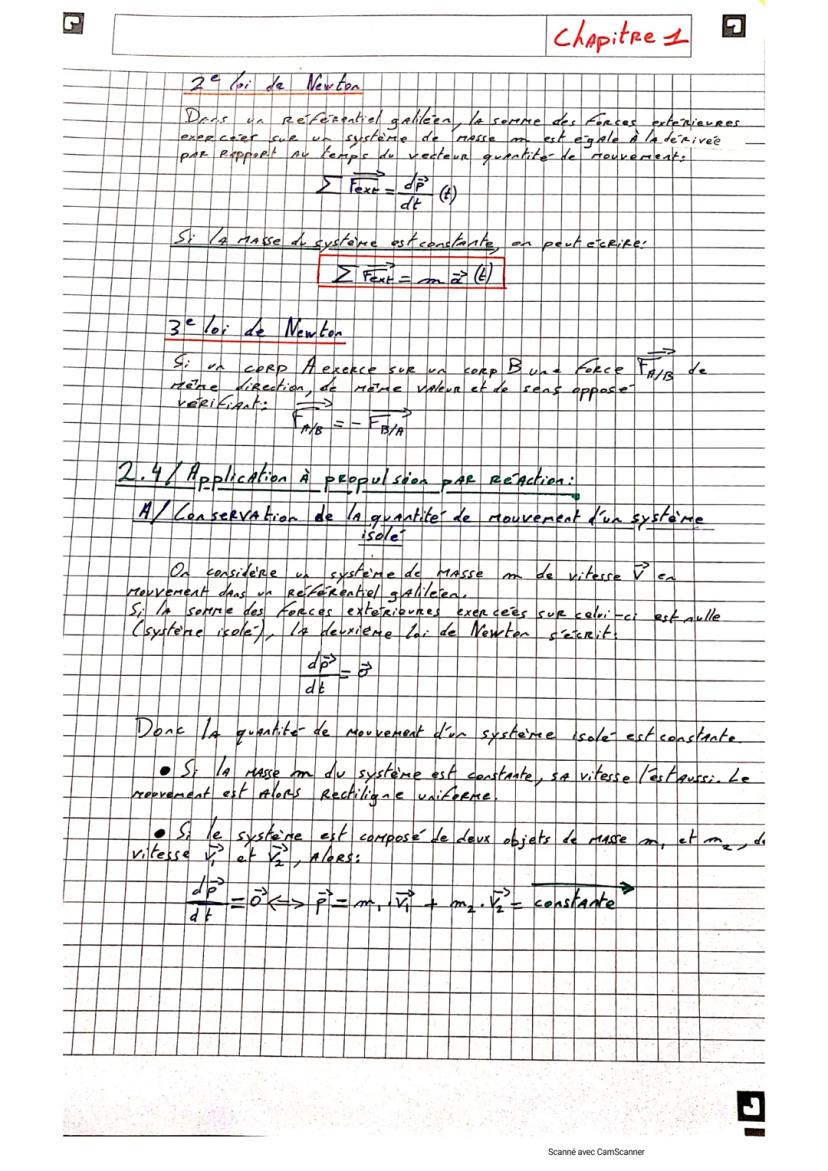 Chapitre 1
2e loi de Newton
Dans un Référentiel galiléen, la somme des Forces extérieures
exercées sur un système de masse m est égale à la dérivée
par rapport au temps du vecteur quantité de mouvement:
∑ F⃗ext = dp⃗/dt (t)
Si la masse du système est constante, on peut écrire:
∑ F⃗ext = m a⃗ (t)
3e loi de Newton
Si un corp A exerce sur un corp B une Force F⃗A/B de
même direction, de même valeur et de sens opposé
vérifiant:
F⃗A/B = - F⃗B/A
2.4/ Application à propulsion par réaction:
A/ Conservation de la quantité de mouvement d'un système
isolé
On considère un système de masse m de vitesse V⃗ en
mouvement dans un Référentiel galiléen.
Si la somme des Forces extérieures exercées sur celui-ci est nulle
(système isolé), la deuxième loi de Newton s'écrit:
dp⃗/dt = 0⃗
Donc la quantité de mouvement d'un système isolé est constante.
• Si la masse m du système est constante, sa vitesse l'est aussi. Le
mouvement est alors Rectiligne uniforme.
• Si le système est composé de deux objets de masse m₁ et m₂, de
vitesse V⃗₁ et V⃗₂, alors:
dp⃗/dt = 0⃗ <=> p⃗ = m₁.V⃗₁ + m₂.V⃗₂ = constante
Scanné avec CamScanner